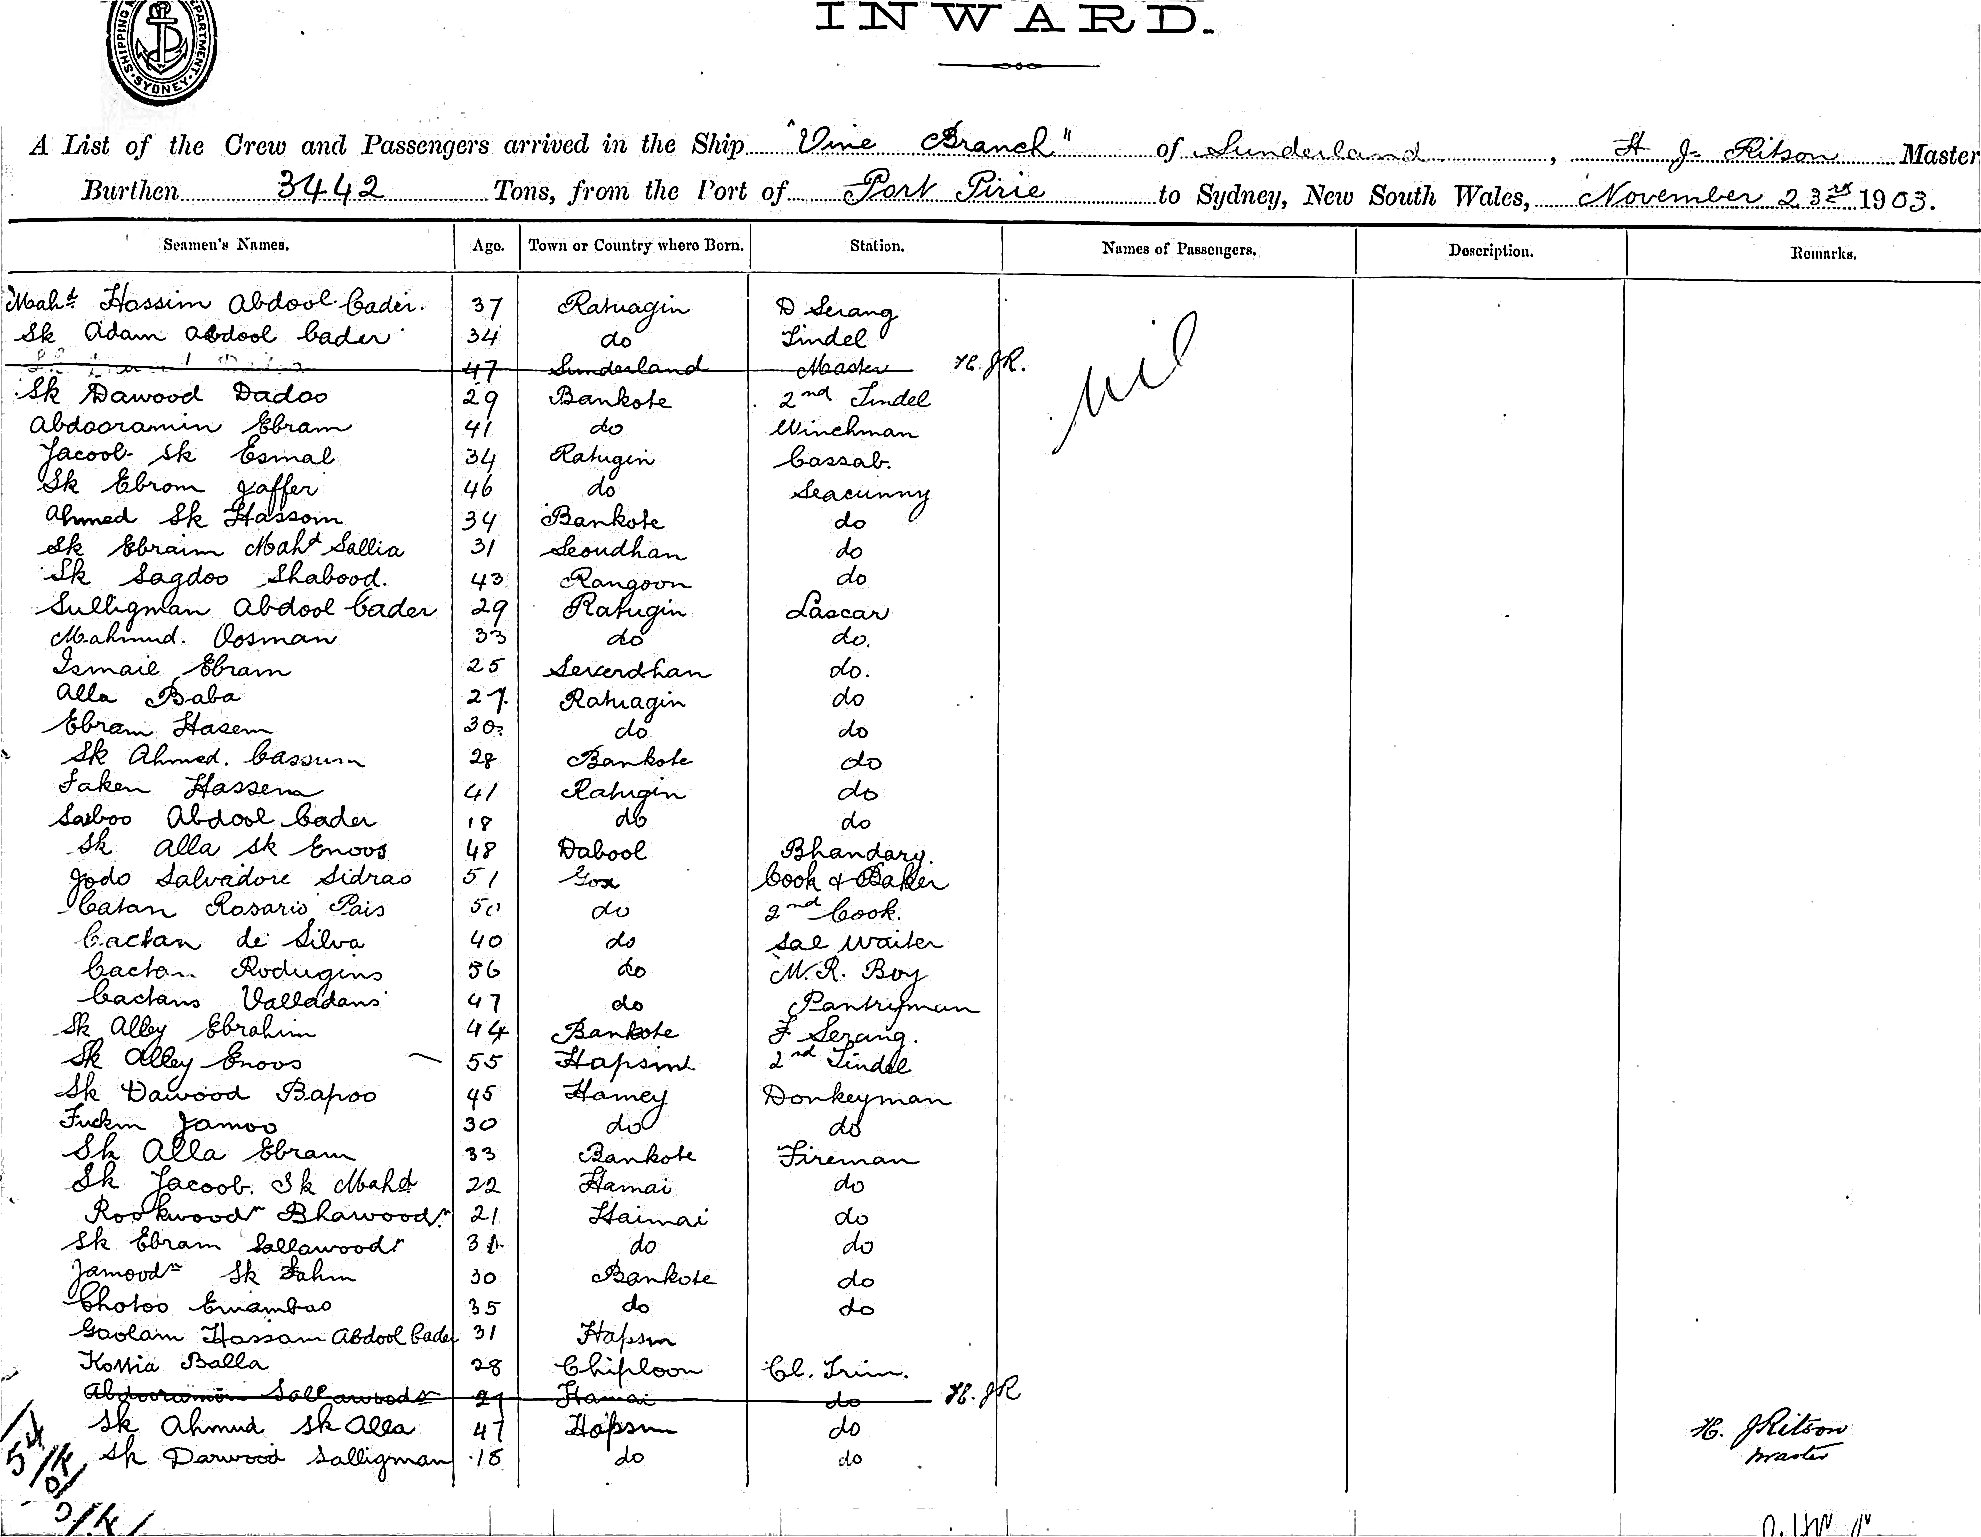 SHIPPING DEPARTMENT SYDNEY
INWARD.
A List of the Crew and Passengers arrived in the Ship "Vine Branch" of Sunderland, H J Ritson Master
Burthen 3442 Tons, from the Port of Port Pirie to Sydney, New South Wales, November 23rd 1903.
Seamen's Names. Age. Town or Country where Born. Station. Names of Passengers. Description. Remarks.
Mahd Hassim Abdool Cader. 37 Ratuagin D Serang
Sk Adam Abdool Cader 34 do Tindel
47 Sunderland Master H.J.R.
nil
Sk Dawood Dadoo 29 Bankote 2nd Tindel
Abdooramin Ebram 41 do Winchman
Jacoob Sk Esmal 34 Ratugin Cassab.
Sk Ebrom Jaffer 46 do Seacunny
Ahmed Sk Hassom 34 Bankote do
Sk Ebraim Mahd Sallia 31 Seoudhan do
Sk Sagdoo Shabood. 43 Rangoon do
Sulligman Abdool Cader 29 Ratugin Lascar
Mahmud. Oosman 33 do do.
Ismail Ebram 25 Severdhan do.
Alla Baba 27 Ratuagin do
Ebram Hasem 30 do do
Sk Ahmed. Cassum 28 Bankote do
Faken Hassem 41 Ratugin do
Saiboo Abdool Cader 18 do do
Sk Alla Sk Enoos 48 Dabool Bhandary.
Jodo Salvadore Sidrao 51 Goa Cook & Baker
Catan Rosario Pais 50 do 2nd Cook.
Caetan de Silva 40 do Sal Waiter
Caetan Rodugins 36 do M. R. Boy
Caetano Valladans 47 do Pantryman
Sk Alley Ebrahim 44 Bankote F Serang.
Sk Alley Enoos 55 Hapsint 2nd Tindel
Sk Dawood Bapoo 45 Hamey Donkeyman
Fuckm Jamoo 30 do do
Sk Alla Ebram 33 Bankote Fireman
Sk Jacoob. Sk Mahd 22 Hamai do
Rookwoodn Bhawoodn 21 Haimai do
Sk Ebram Sallawoodn 31 do do
Jamoodn Sk Fahm 30 Bankote do
Chotoo Emambao 35 do do
Goolam Hassam Abdool Cader 31 Hapsm
Kossia Balla 28 Chiploon Cl. Trim.
Abdooramon Sallawoodn 21 Hamai do H.J.R
Sk Ahmud Sk Alla 47 Hopsm do
Sk Darwood Salligman 18 do do
H. J Ritson
Master
54